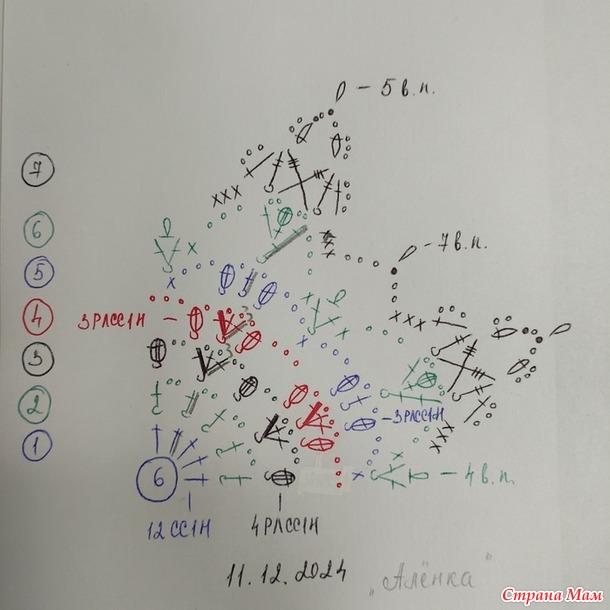 - 5 в.п.
7
6
- 7 в.п.
5
4
3 РЛСС1Н -
3
2
- 3РЛСС1Н
1
6
- 4 в.п.
12 СС1Н
4 РЛСС1Н
11.12.2024
„Алёнка"
Страна Мам